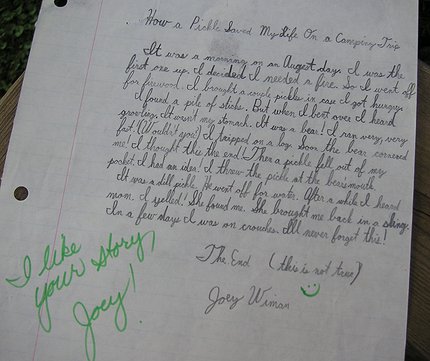 How a Pickle Saved My Life On a Camping Trip
It was a morning on an August day. I was the
first one up. I decided I needed a fire. So I went off
for firewood. I brought a couple pickles in case I got hungry.
I found a pile of sticks. But when I bent over I heard
growling. It wasn't my stomach. It was a bear! I ran very, very
fast. (Wouldn't you?) I tripped on a log. Soon the bear cornered
me! I thought this the end! Then a pickle fell out of my
pocket. I had an idea. I threw the pickle at the bear's mouth.
It was a dill pickle. He went off for water. After a while I heard
mom. I yelled! She found me. She brought me back in a sling.
In a few days I was on crouches. I'll never forget this!
The End (this is not true)
Joey Wiman
I like
your story,
Joey!